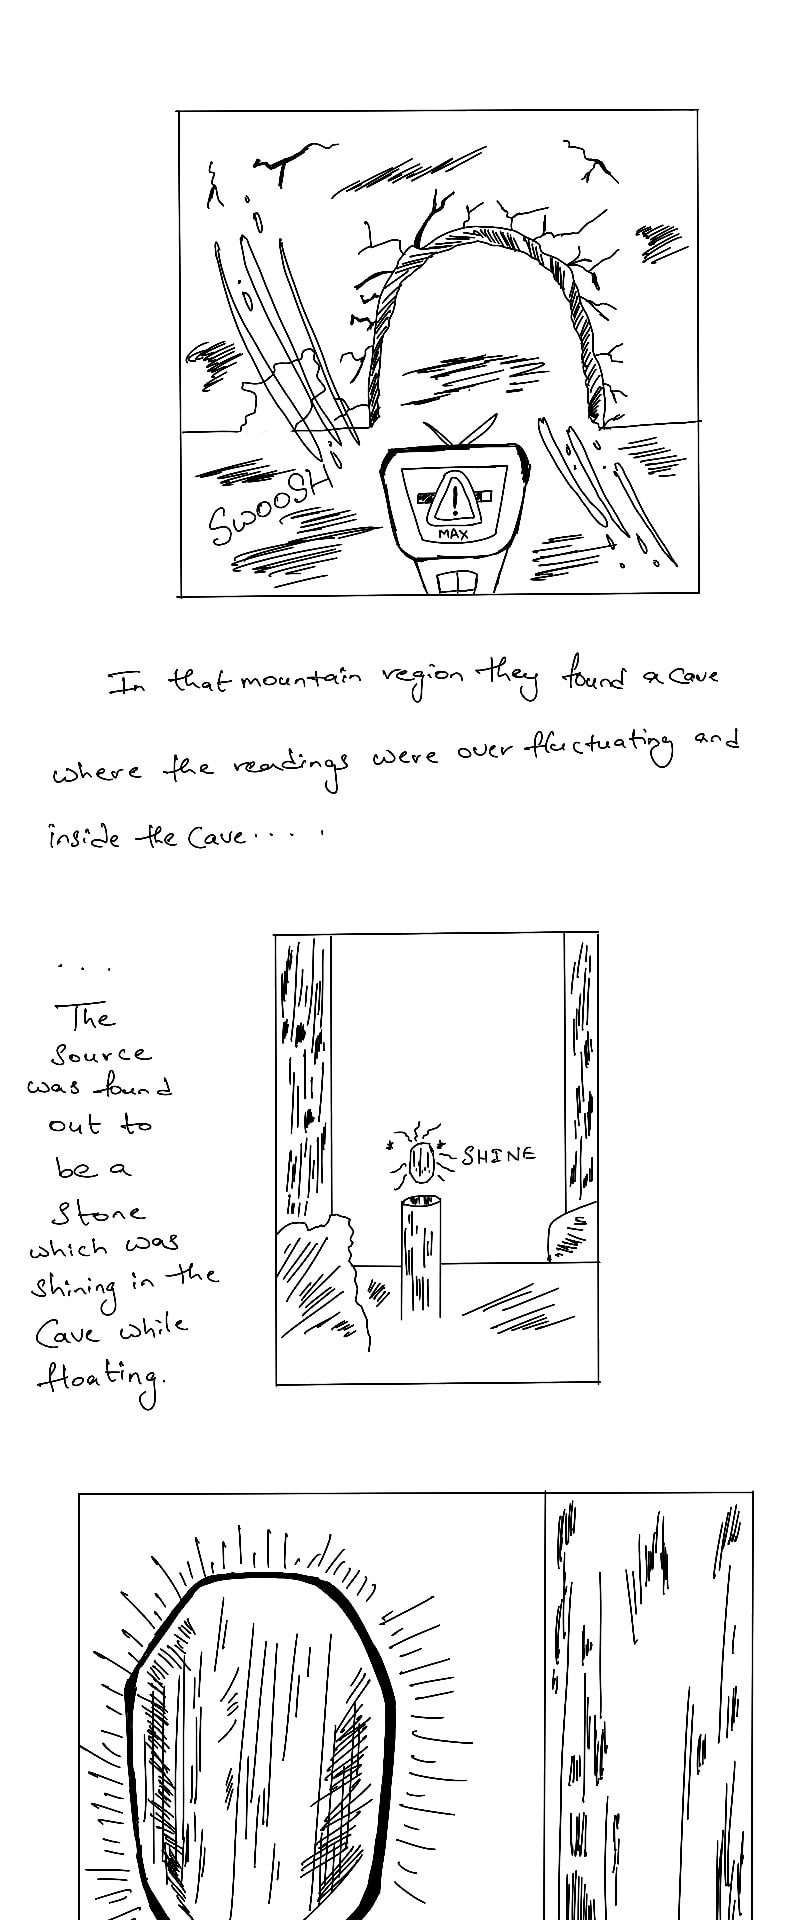 SWOOSH
!
MAX
In that mountain region they found a cave
where the readings were over fluctuating and
inside the Cave....
...
The
Source
was found
out to
be a
Stone
which was
Shining in the
Cave while
floating.
SHINE